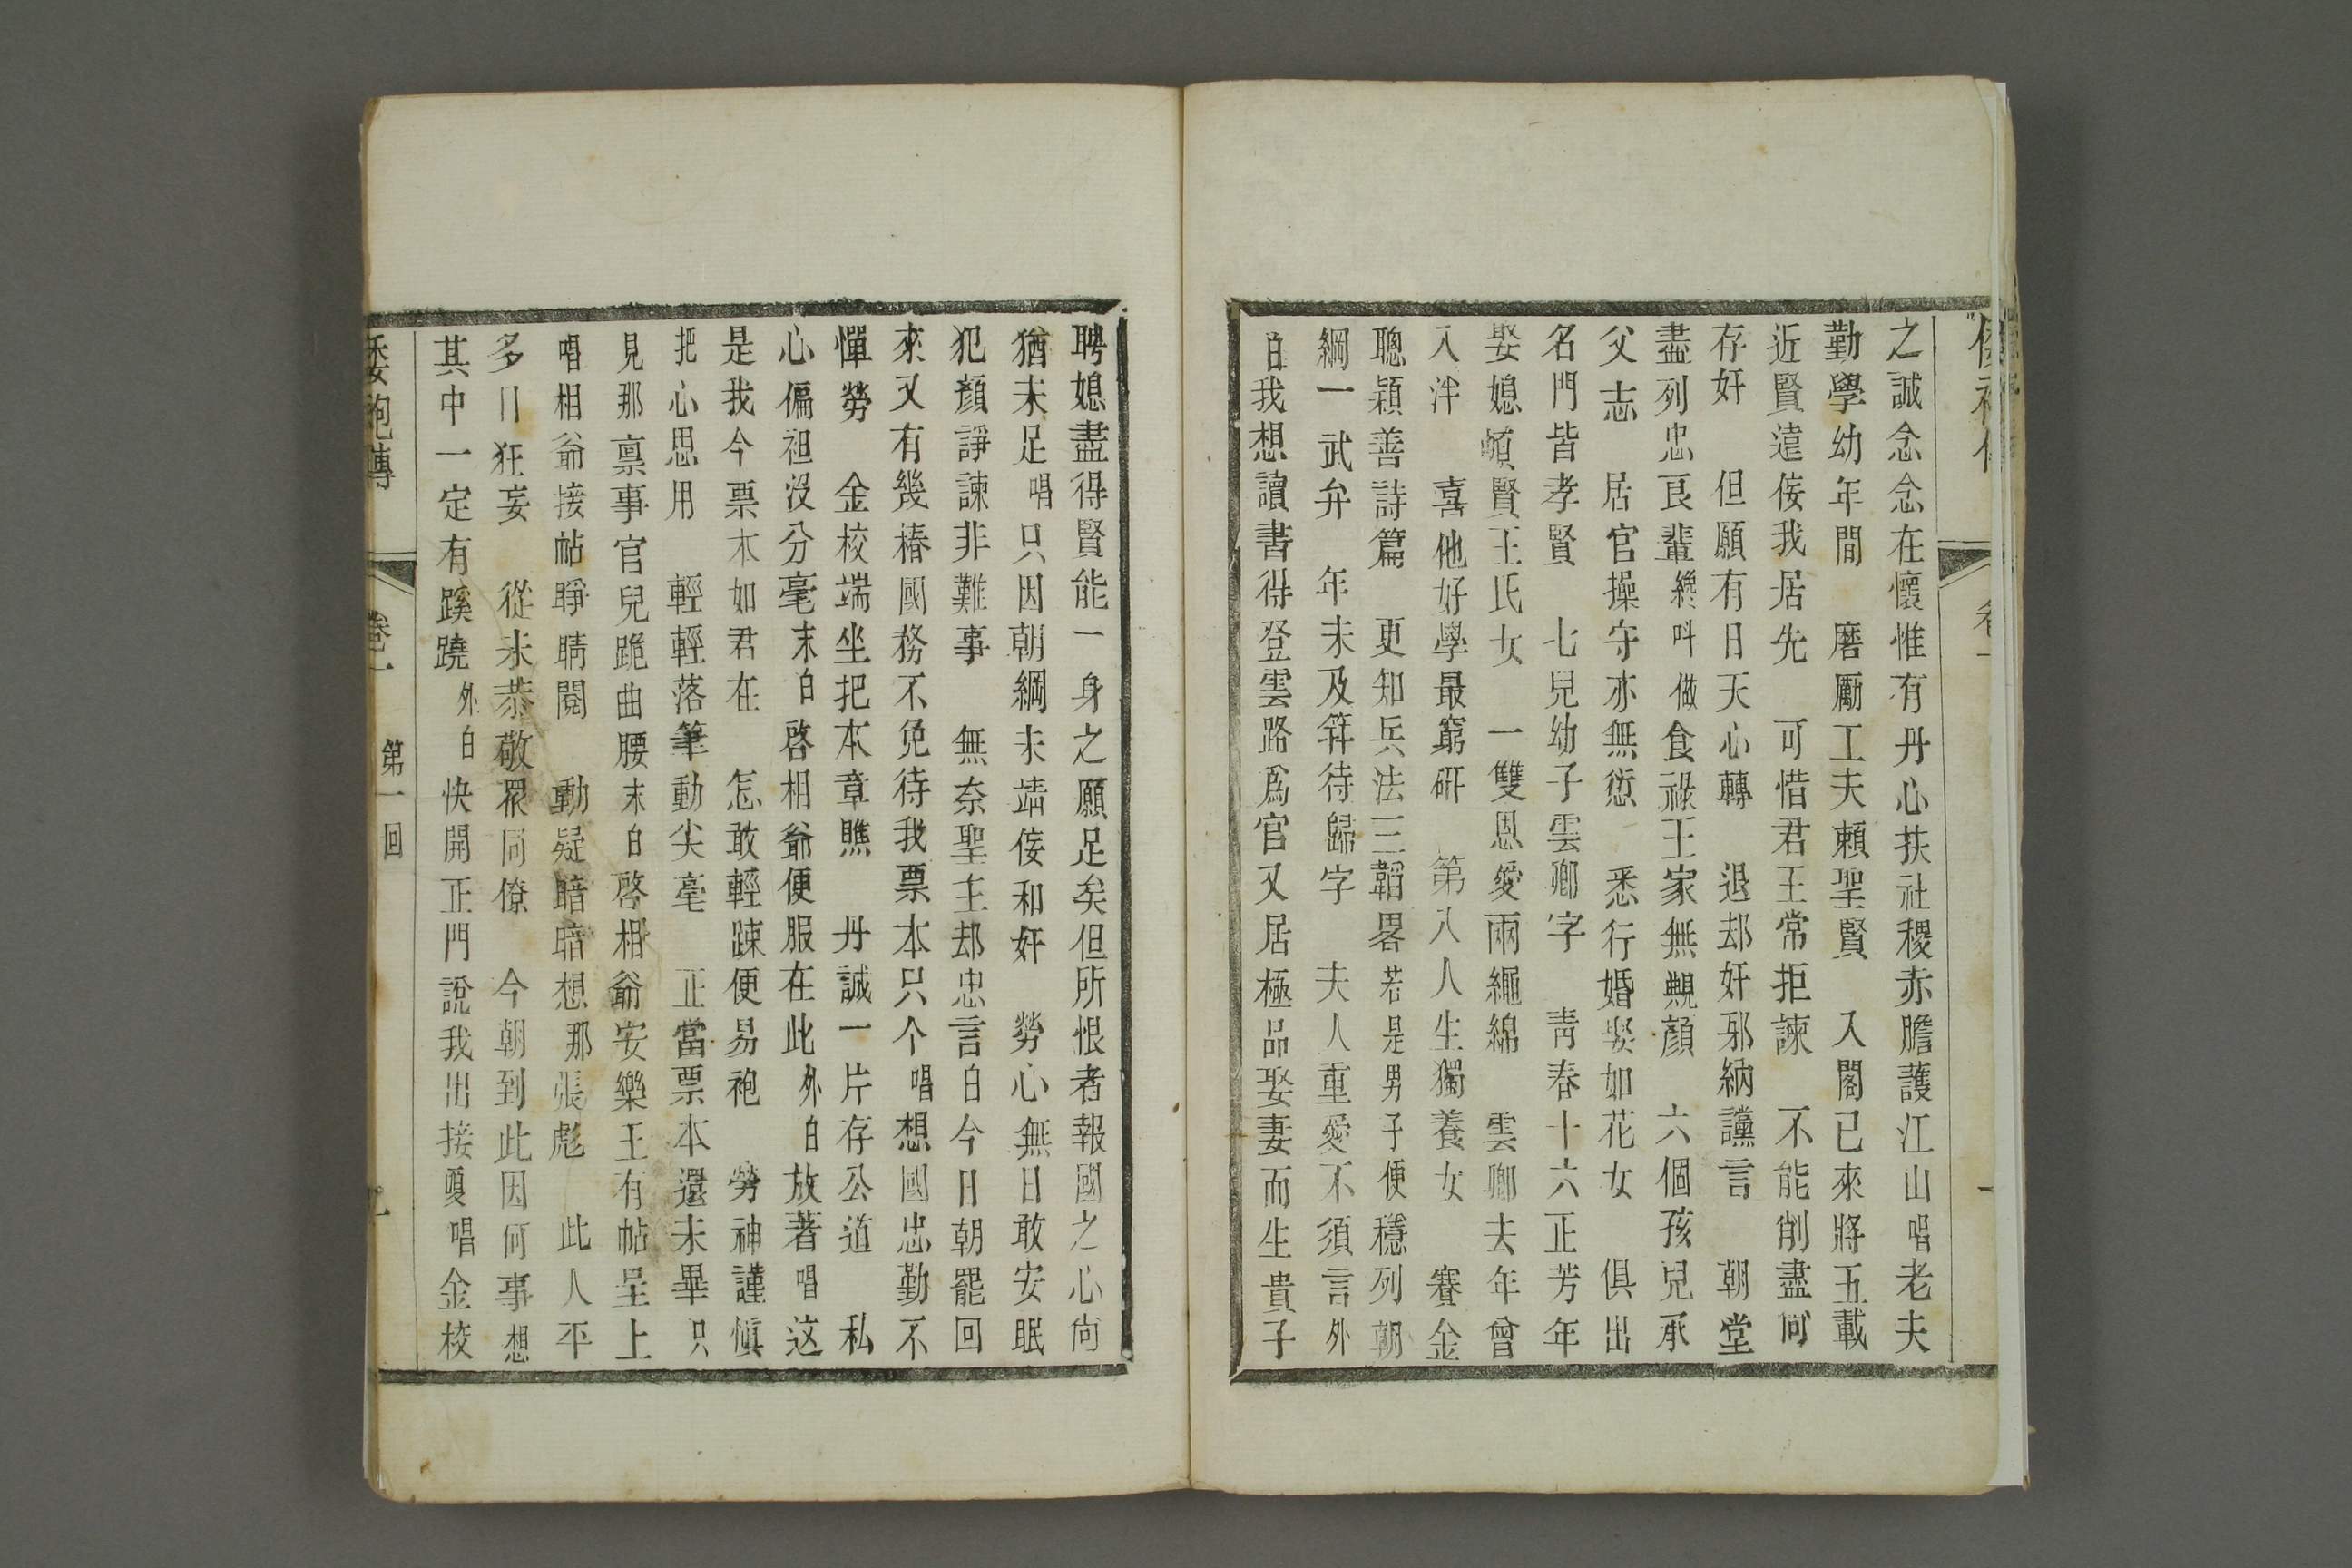 之誠念念在懷惟有丹心扶社稷赤膽護江山唱老夫
勤學幼年間　磨勵工夫頼聖賢　入閣已來將五載
近賢遠佞我居先　可惜君王常拒諫　不能削盡何
存奸　但願有日天心轉　退却奸邪納讜言　朝堂
盡列忠良輩纔呌做食祿王家無覥顔　六個孩兒承
父志　居官操守亦無愆　悉行婚娶如花女　俱出
名門皆孝賢　七兒幼子雲卿字　青春十六正芳年
娶媳頓賢王氏女　一雙恩愛兩繩綿　雲卿去年曾
入泮　喜他好學最窮研　第八人生獨養女　賽金
聰穎善詩篇　更知兵法三韜畧若是男子便穩列朝
綱一武弁　年未及笄待歸字　夫人重愛不須言外
白我想讀書得登雲路爲官又居極品娶妻而生貴子
聘媳盡得賢能一身之願足矣但所恨者報國之心向
猶未足唱只因朝綱未靖佞和奸　勞心無日敢安眠
犯顔諍諫非難事　無奈聖主却忠言白今日朝罷回
來又有幾樁國務不免待我票本只个唱想國忠勤不
憚勞　金校端坐把本章瞧　丹誠一片存公道　私
心偏袒沒分毫末白啓相爺便服在此外白放著唱这
是我今票本如君在　怎敢輕踈便易袍　勞神謹愼
把心思用　輕輕落筆動尖毫　正當票本還未畢只
見那禀事官兒跪曲腰末白啓相爺安樂王有帖呈上
唱相爺接帖睜睛閱　動疑暗暗想那張彪　此人平
多日狂妄　從未恭敬衆同僚　今朝到此因何事想
其中一定有蹊蹺外白快開正門說我出接㪅唱金校
倭袍傳
卷一
第一回